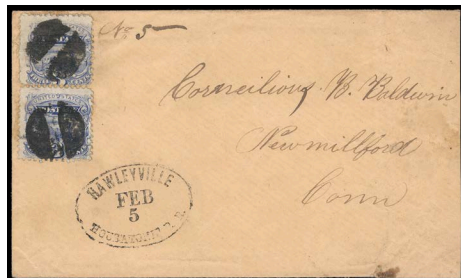 No 5
Corneilious B. Baldwin
Newmillford
Conn
HAWLEYVILLE
FEB
5
HOUSATONIC R.R.